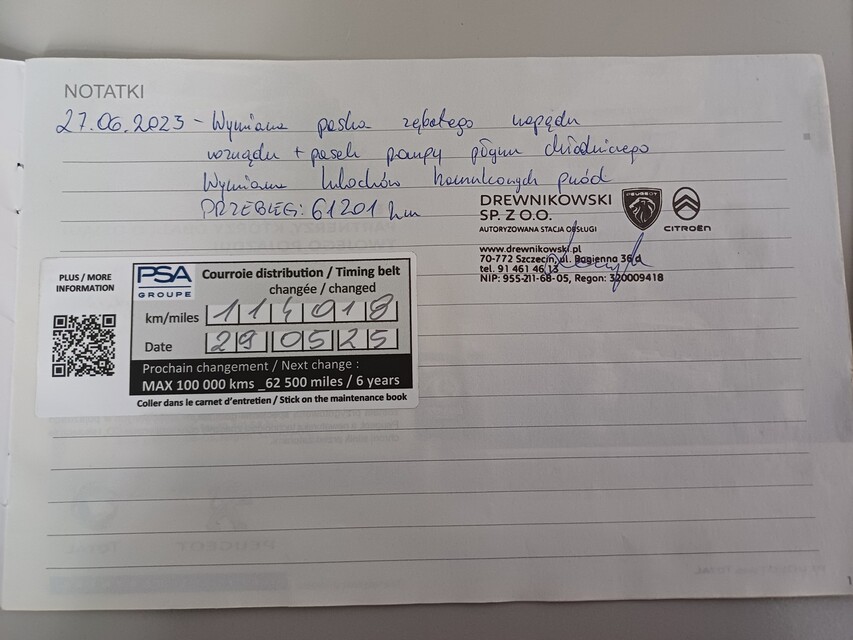 NOTATKI
27.06.2023 - Wymiana paska zębatego napędu
rozrządu + pasek pompy płynu chłodniczego
Wymiana klocków hamulcowych przód
PRZEBIEG: 61201 km
DREWNIKOWSKI
SP. Z O.O.
AUTORYZOWANA STACJA OBSŁUGI
PEUGEOT
CITROËN
www.drewnikowski.pl
70-772 Szczecin, ul. Bagienna 36 d
tel. 91 461 46 13
NIP: 955-211-68-05, Regon: 320009418
PLUS / MORE
INFORMATION
PSA
GROUPE
Courroie distribution / Timing belt
changée / changed
km/miles 114918
Date 29 05 25
Prochain changement / Next change :
MAX 100 000 kms _62 500 miles / 6 years
Coller dans le carnet d'entretien / Stick on the maintenance book